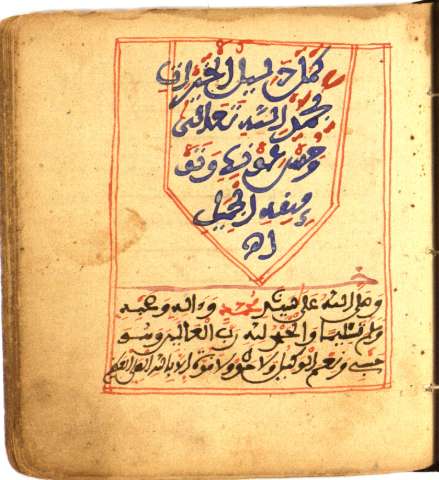 كمل دليل الخيرات
بحمد الله تعالى
وحسن عونه وتو
فيقه الجميل
اه
وصلى الله على سيدنا محمد وءاله وصحبه
وسلم تسليما والحمد لله رب العالمين وهو
حسبي ونعم الوكيل ولا حول ولا قوة إلا بالله العلي العظيم